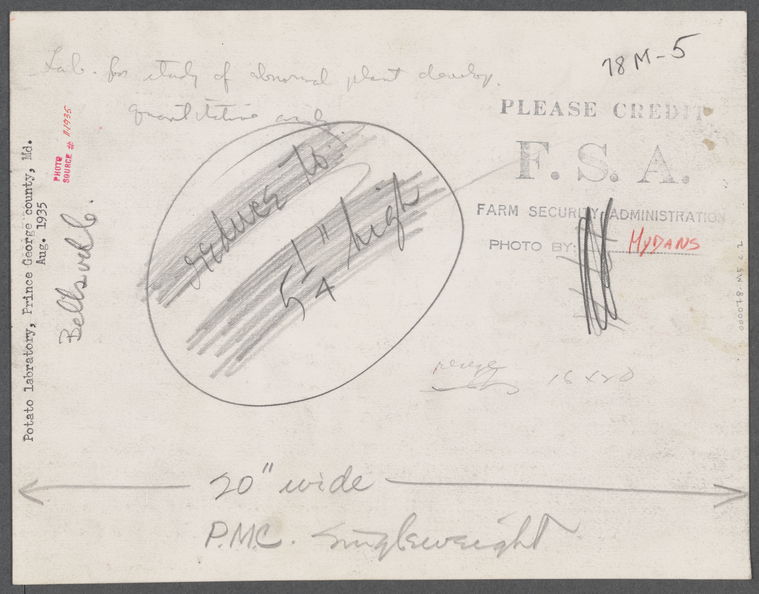 Lab. for study of abnormal plant develop.
quantitative
78M-5
PLEASE CREDIT
F. S. A.
FARM SECURITY ADMINISTRATION
PHOTO BY: MYDANS
PHOTO
SOURCE # 81935
Potato labratory, Prince George county, Md.
Aug. 1935
Beltsville.
reduce to
5 1/4" high
16 x 20
20" wide
P.M.C. Singleweight